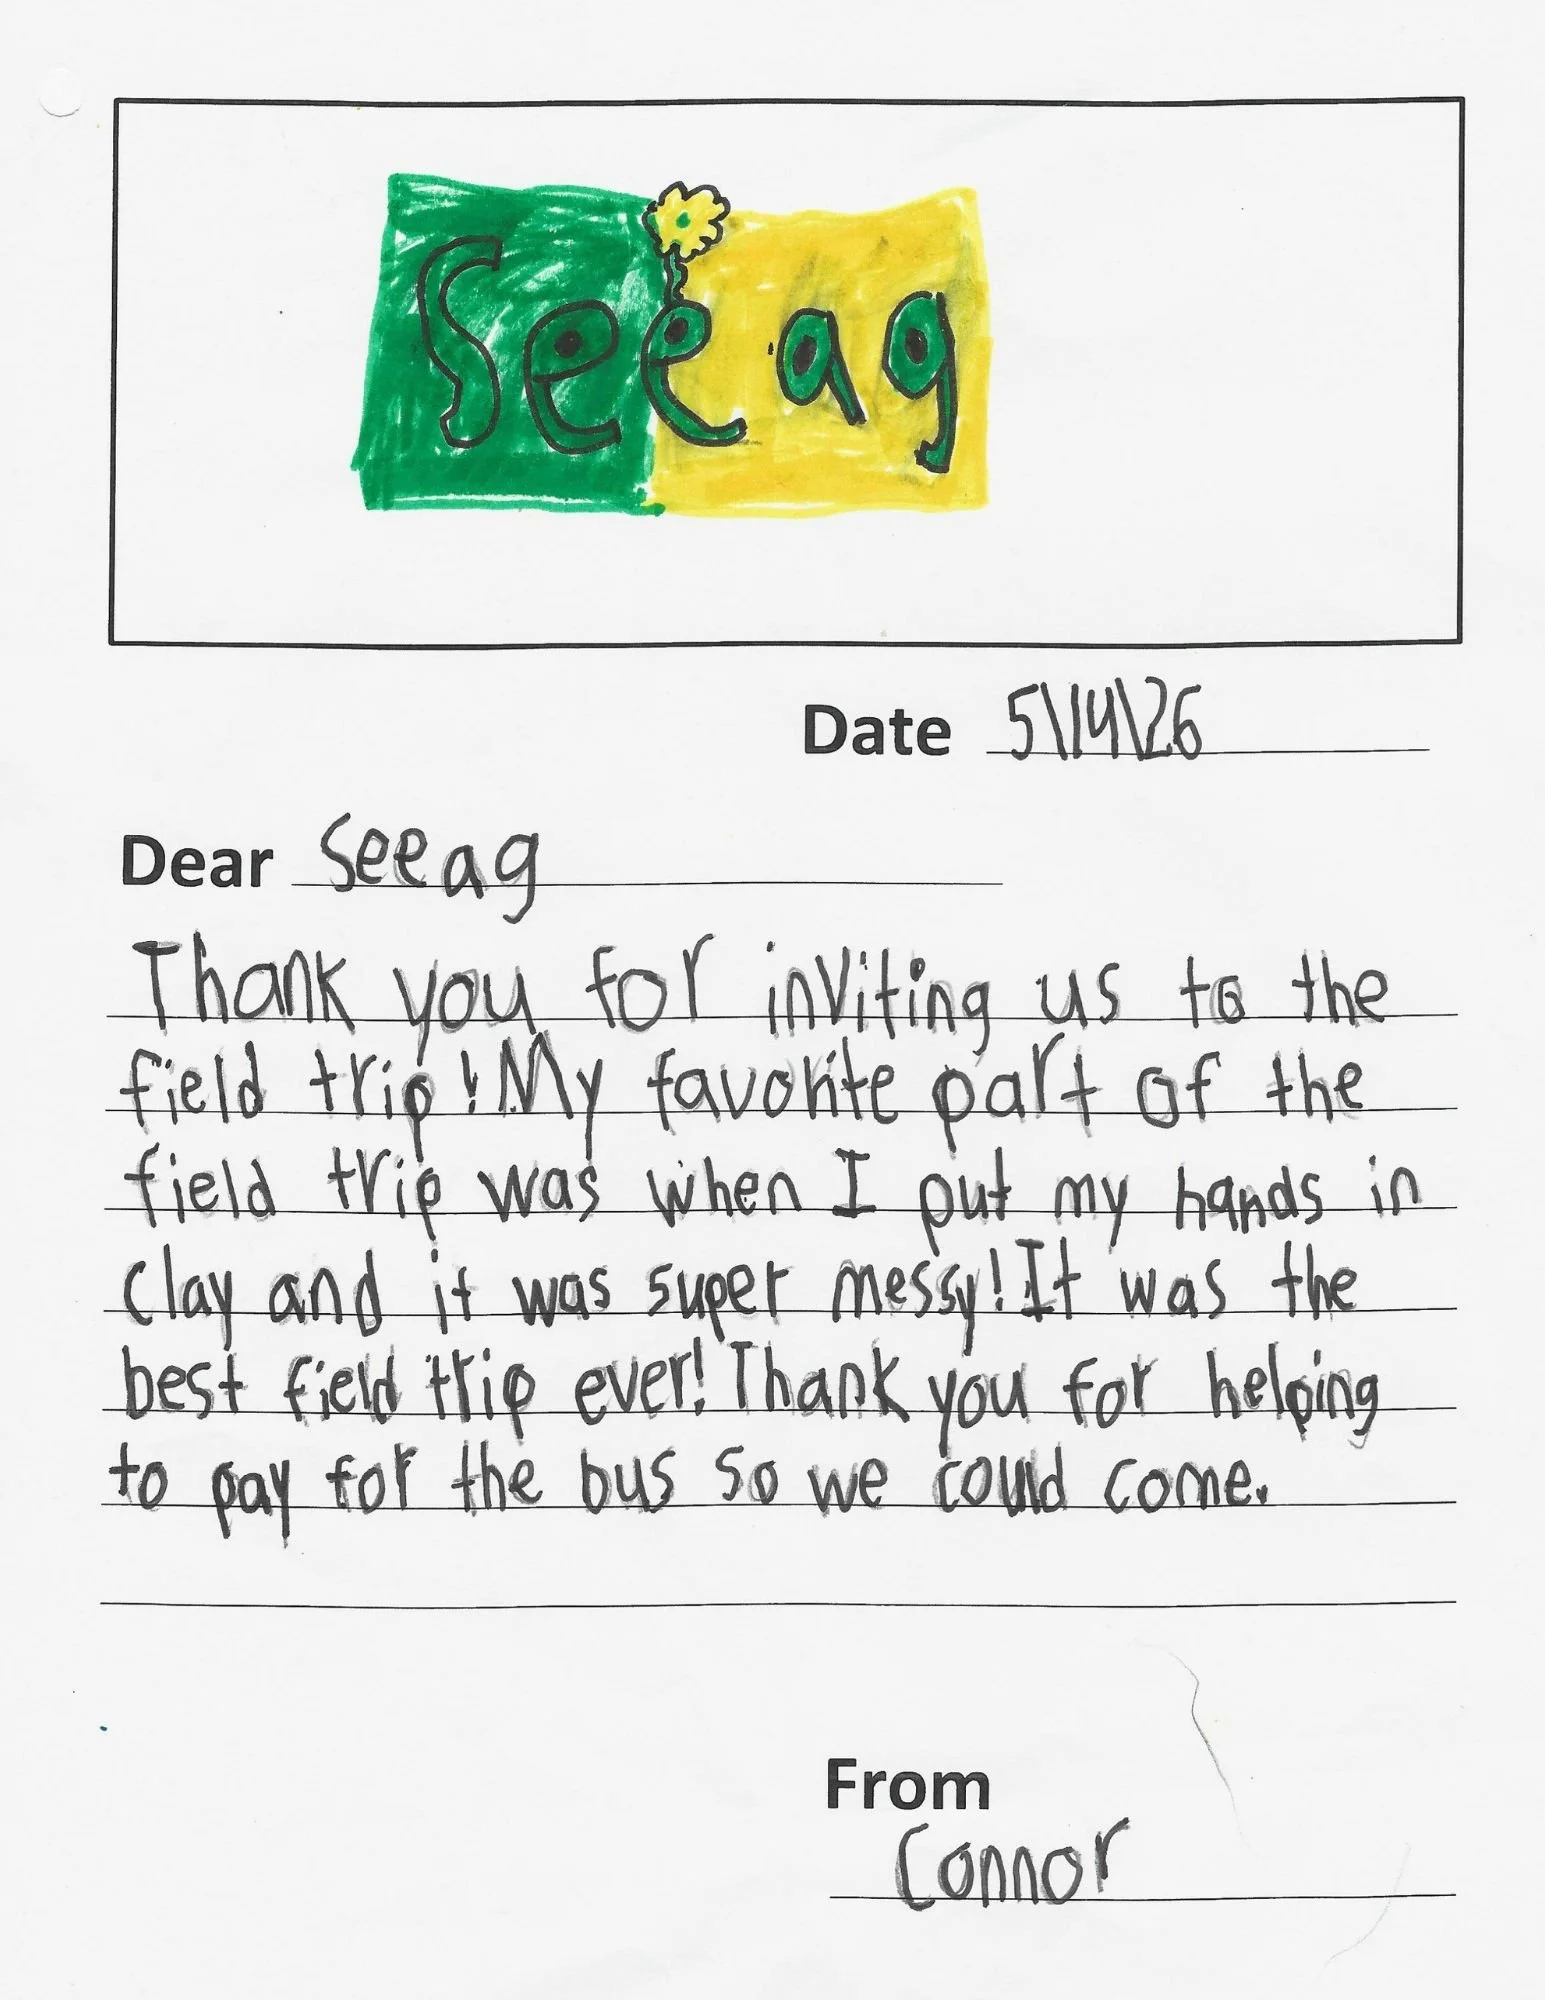 Seeag
Date 5\14\26
Dear Seeag
Thank you for inviting us to the
field trip! My favorite part of the
field trip was when I put my hands in
clay and it was super messy! It was the
best field trip ever! Thank you for helping
to pay for the bus so we could come.
From
Connor